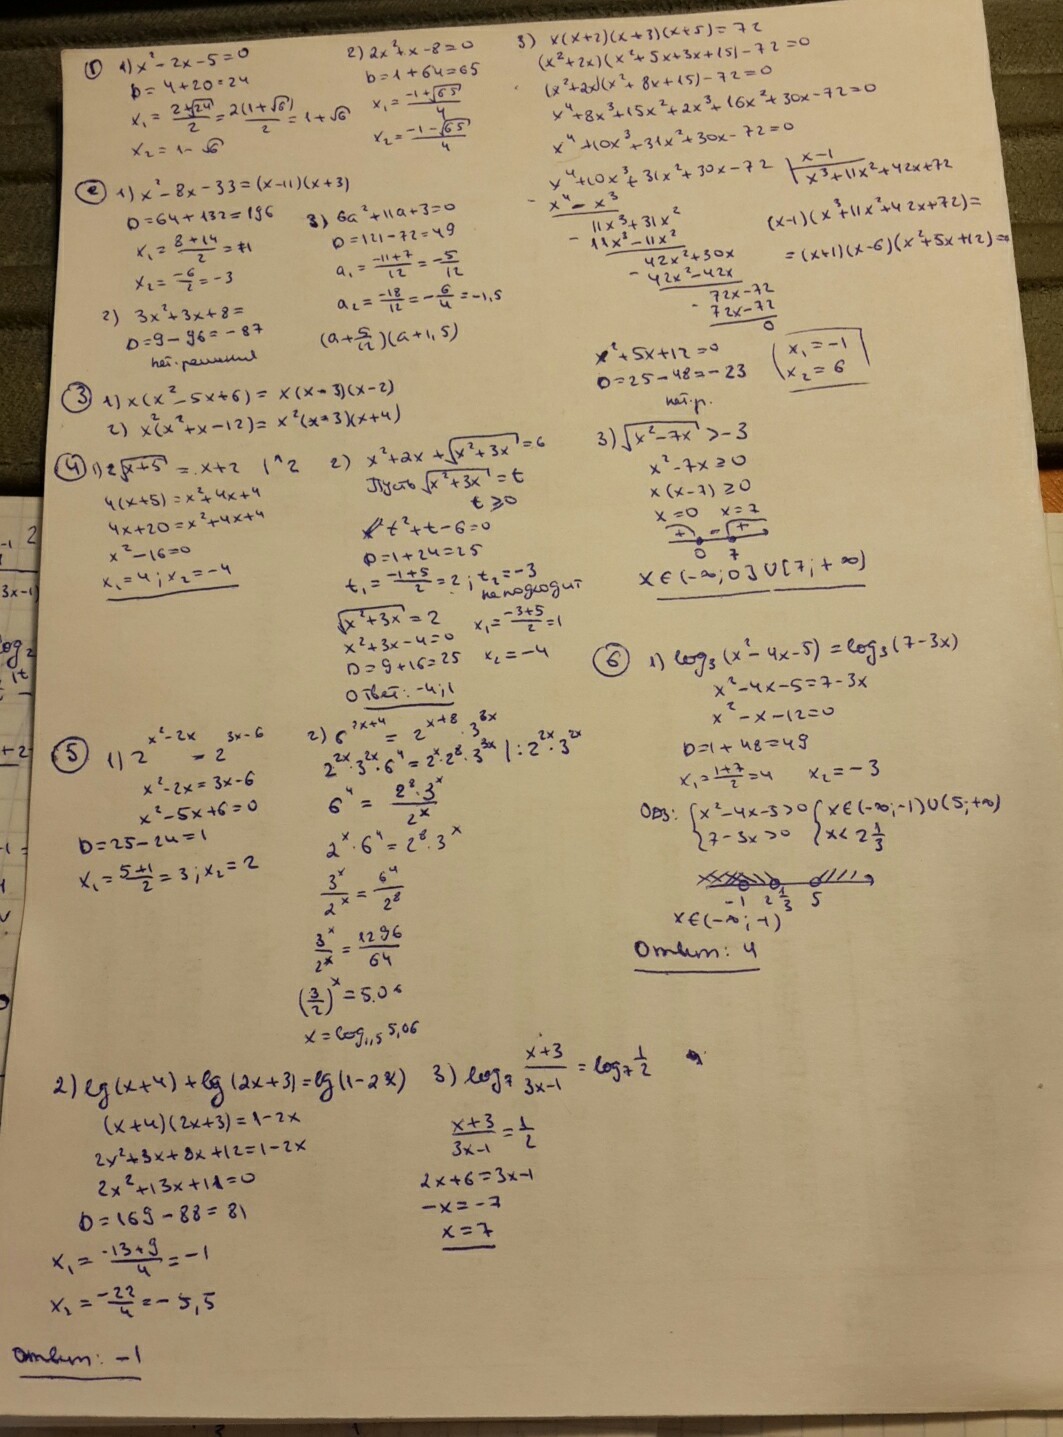 ① 1) x² - 2x - 5 = 0
D = 4 + 20 = 24
x₁ = (2+√24)/2 = 2(1+√6)/2 = 1 + √6
x₂ = 1 - √6
2) 2x² + x - 8 = 0
D = 1 + 64 = 65
x₁ = (-1+√65)/4
x₂ = (-1-√65)/4
3) x(x+2)(x+3)(x+5) = 72
(x²+2x)(x²+5x+3x+15) - 72 = 0
(x²+2x)(x²+8x+15) - 72 = 0
x⁴+8x³+15x²+2x³+16x²+30x-72=0
x⁴+10x³+31x²+30x-72=0
x⁴+10x³+31x²+30x-72 | x-1
x⁴ - x³ | x³+11x²+42x+72
11x³+31x²
- 11x³-11x²
42x²+30x
- 42x²-42x
72x-72
- 72x-72
0
(x-1)(x³+11x²+42x+72)=
=(x+1)(x-6)(x²+5x+12)=
x²+5x+12=0
D=25-48=-23
нет.р.
x₁=-1
x₂=6
② 1) x²-8x-33=(x-11)(x+3)
D=64+132=196
x₁=(8+14)/2=11
x₂=-6/2=-3
2) 3x²+3x+8=
D=9-96=-87
нет.решений
3) 6a²+11a+3=0
D=121-72=49
a₁=(-11+7)/12=-5/12
a₂=-18/12=-6/4=-1,5
(a+5/12)(a+1,5)
③ 1) x(x²-5x+6)=x(x-3)(x-2)
2) x²(x²+x-12)=x²(x-3)(x+4)
④ 1) 2√(x+5)=x+2 |^2
4(x+5)=x²+4x+4
4x+20=x²+4x+4
x²-16=0
x₁=4; x₂=-4
2) x²+2x+√(x²+3x)=6
Пусть √(x²+3x)=t
t≥0
t²+t-6=0
D=1+24=25
t₁=(-1+5)/2=2; t₂=-3
не подходит
√(x²+3x)=2
x²+3x-4=0
D=9+16=25
x₁=(-3+5)/2=1
x₂=-4
Ответ: -4;1
3) √(x²-7x)>-3
x²-7x≥0
x(x-7)≥0
x=0 x=7
+ - +
0 7
x∈(-∞;0]∪[7;+∞)
⑤ 1) 2^(x²-2x)=2^(3x-6)
x²-2x=3x-6
x²-5x+6=0
D=25-24=1
x₁=(5+1)/2=3; x₂=2
2) 6^(2x+4)=2^(x+8)·3^(3x)
2^(2x)·3^(2x)·6⁴=2^x·2⁸·3^(3x) |:2^(2x)·3^(2x)
6⁴=(2⁸·3^x)/2^x
2^x·6⁴=2⁸·3^x
3^x/2^x=6⁴/2⁸
3^x/2^x=1296/64
(3/2)^x=5,06
x=log₁,₅5,06
⑥ 1) log₃(x²-4x-5)=log₃(7-3x)
x²-4x-5=7-3x
x²-x-12=0
D=1+48=49
x₁=(1+7)/2=4 x₂=-3
Одз: {x²-4x-5>0 {x∈(-∞;-1)∪(5;+∞)
{7-3x>0 {x<2 1/3
-1 2 1/3 5
x∈(-∞;-1)
Ответ: 4
2) lg(x+4)+lg(2x+3)=lg(1-2x)
(x+4)(2x+3)=1-2x
2x²+3x+8x+12=1-2x
2x²+13x+11=0
D=169-88=81
x₁=(-13+9)/4=-1
x₂=-22/4=-5,5
Ответ: -1
3) log₇ (x+3)/(3x-1)=log₇ 1/2
(x+3)/(3x-1)=1/2
2x+6=3x-1
-x=-7
x=7